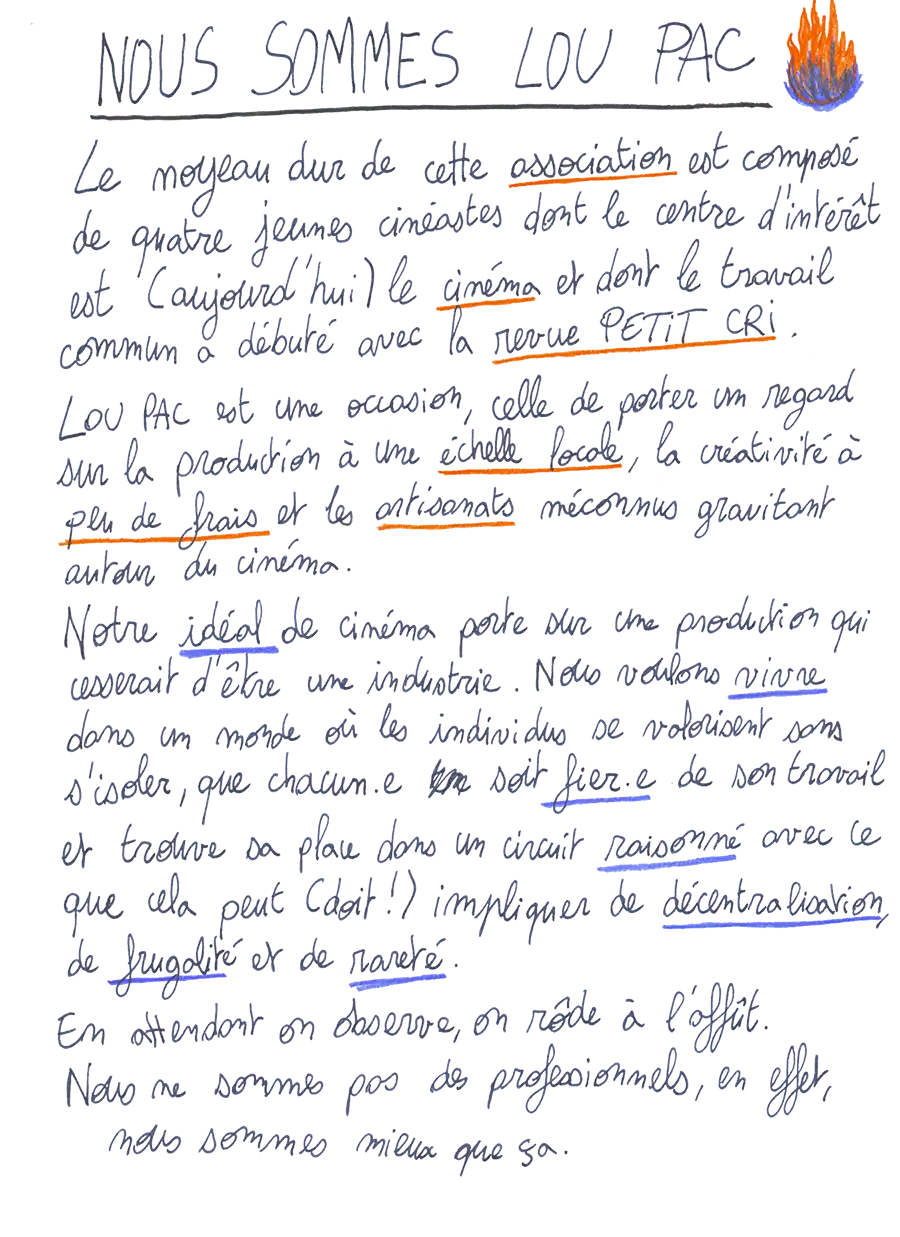 NOUS SOMMES LOU PAC
Le noyeau dur de cette association est composé
de quatre jeunes cinéastes dont le centre d'intérêt
est (aujourd'hui) le cinéma et dont le travail
commun a débuté avec la revue PETIT CRI.
LOU PAC est une occasion, celle de porter un regard
sur la production à une échelle locale, la créativité à
peu de frais et les artisanats méconnus gravitant
autour du cinéma.
Notre idéal de cinéma porte sur une production qui
cesserait d'être une industrie. Nous voulons vivre
dans un monde où les individus se valorisent sans
s'isoler, que chacun.e soit fier.e de son travail
et trouve sa place dans un circuit raisonné avec ce
que cela peut (doit!) impliquer de décentralisation,
de frugalité et de rareté.
En attendant on observe, on rôde à l'affût.
Nous ne sommes pas des professionnels, en effet,
nous sommes mieux que ça.